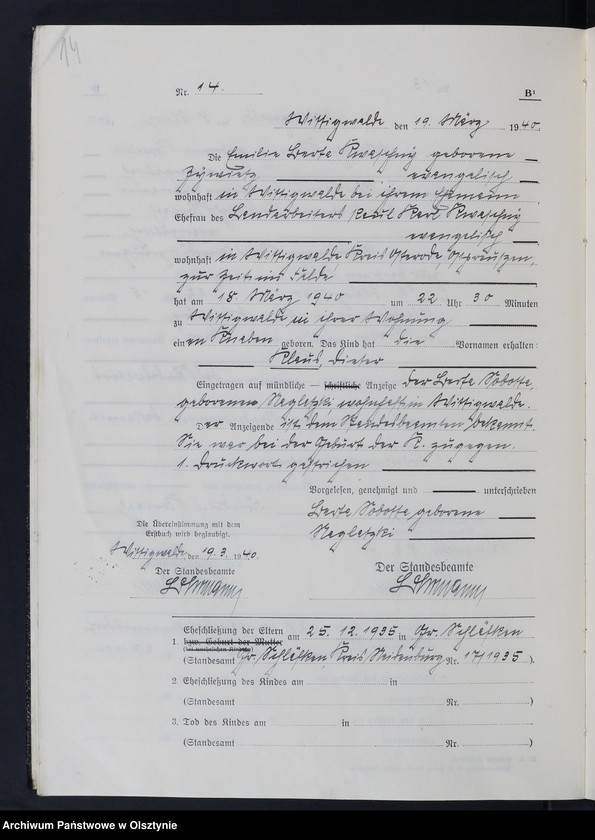 14
Nr. 14.
B¹
Wittigwalde den 19. März 1940.
Die Emilie Berta Kwaschny geborene
Zywietz evangelisch
wohnhaft in Wittigwalde bei ihrem Ehemann
Ehefrau des Landarbeiters Karl Kwaschny
evangelisch
wohnhaft in Wittigwalde, Kreis Osterode, Ostpreußen,
zur Zeit im Felde
hat am 18. März 1940 um 22 Uhr 30 Minuten
zu Wittigwalde in ihrer Wohnung
einen Knaben geboren. Das Kind hat die Vornamen erhalten:
Klaus, Dieter
Eingetragen auf mündliche — schriftliche Anzeige der Berta Sobotta,
geborenen wohnhaft in Wittigwalde.
Der Anzeigende ist dem Standesbeamten bekannt.
Sie war bei der Geburt der K. zugegen.
1. Druckwort gestrichen
Vorgelesen, genehmigt und unterschrieben
Berta Sobotta geborene
Die Übereinstimmung mit dem
Erstbuch wird beglaubigt.
Wittigwalde, den 19. 3. 1940
Der Standesbeamte
Der Standesbeamte
1. Eheschließung der Eltern am 25. 12. 1935 in Gr. Schläfken
bzw. Geburt der Mutter
(bei unehelichen Kindern)
(Standesamt Gr. Schläfken, Kreis Neidenburg Nr. 17/1935 ).
2. Eheschließung des Kindes am in
(Standesamt Nr. )
3. Tod des Kindes am in
(Standesamt Nr. )
Archiwum Państwowe w Olsztynie